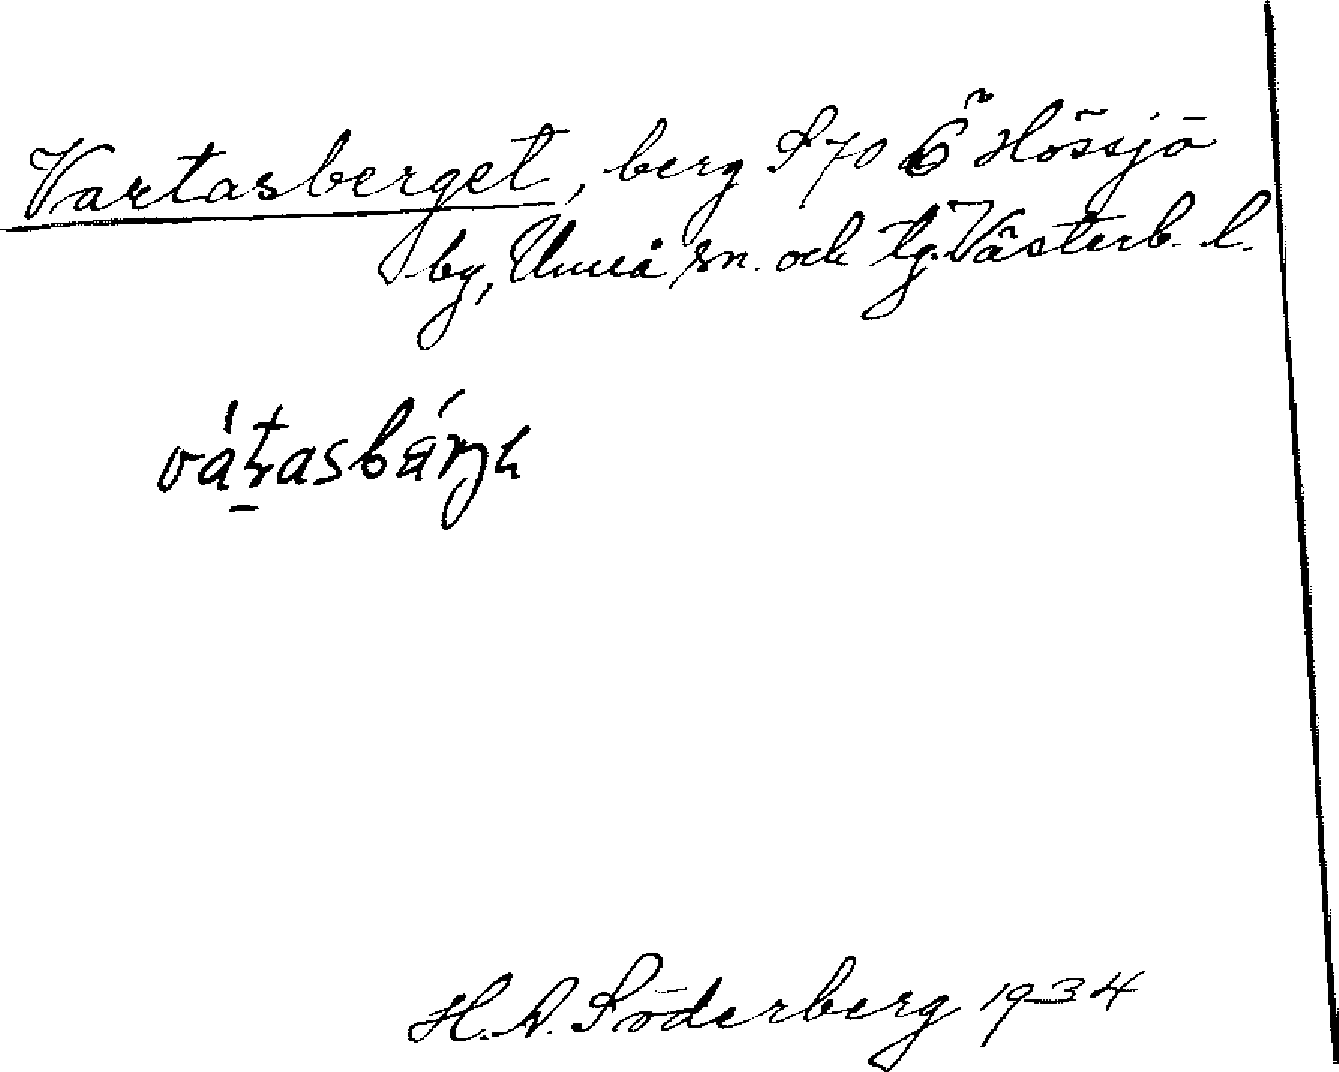 Vartasberget, berg S 70° ö Hössjö
by, Umeå sn. och tg. Västerb. l.
H. A. Söderberg 1934